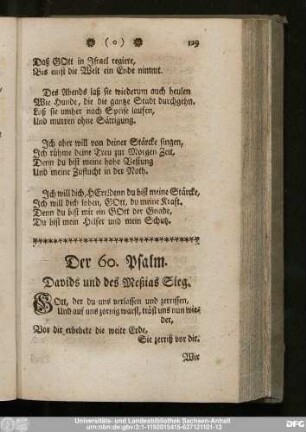 ( o ) 129
Daß GOtt in Israel regiere,
Bis einst die Welt ein Ende nimmt.
Des Abends laß sie wiederum auch heulen
Wie Hunde, die die gantze Stadt durchgehn.
Laß sie umher nach Speise laufen,
Und murren ohne Sättigung.
Ich aber will von deiner Stärcke singen,
Ich rühme deine Treu zur Morgen Zeit,
Denn du bist meine hohe Vestung
Und meine Zuflucht in der Noth.
Ich will dich, HErr! denn du bist meine Stärcke,
Ich will dich loben, GOtt, du meine Kraft,
Denn du bist mir ein GOtt der Gnade,
Du bist mein Helfer und mein Schutz.
Der 60. Psalm.
Davids und des Meßias Sieg.
GOtt, der du uns verlassen und zerrissen,
Und auf uns zornig warst, tröst uns nun wie-
der,
Vor dir erbebete die weite Erde,
Sie zerriß vor dir.
Wie
Universitäts- und Landesbibliothek Sachsen-Anhalt
urn:nbn:de:gbv:3:1-1192015415-627121101-13
DFG